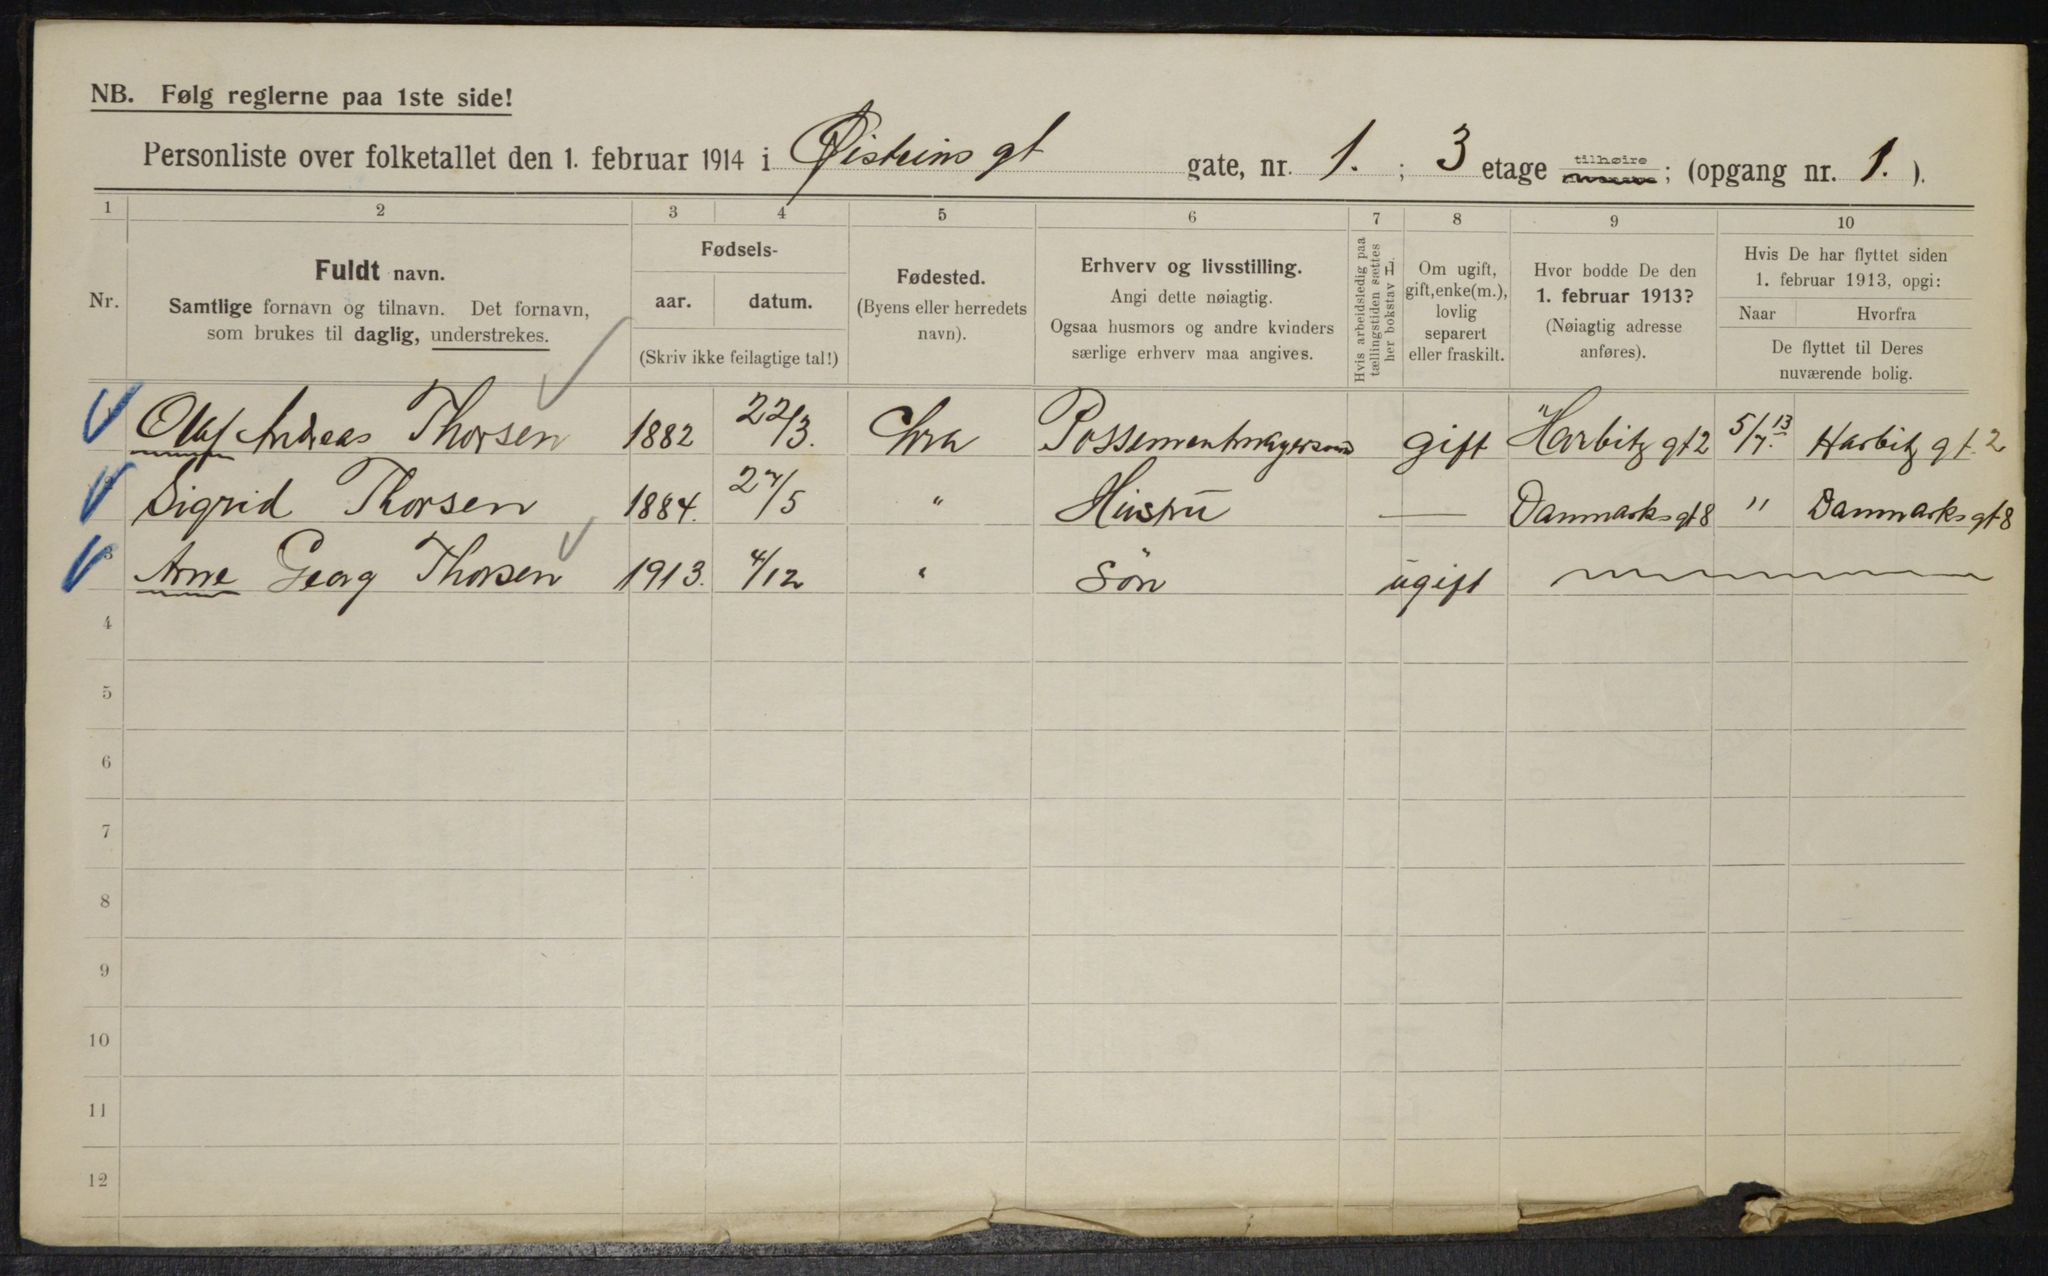 NB. Følg reglerne paa 1ste side!
Personliste over folketallet den 1. februar 1914 i Øisteins gt gate, nr. 1. ; 3 etage tilhøire ; (opgang nr. 1. ).
1 2 3 4 5 6 7 8 9 10
Nr.
Fuldt navn.
Samtlige fornavn og tilnavn. Det fornavn,
som brukes til daglig, understrekes.
Fødsels-
aar. datum.
(Skriv ikke feilagtige tal!)
Fødested.
(Byens eller herredets
navn).
Erhverv og livsstilling.
Angi dette nøiagtig.
Ogsaa husmors og andre kvinders
særlige erhverv maa angives.
Hvis arbeidsledig paa
tællingstiden sættes
her bokstav L.
Om ugift,
gift, enke(m.),
lovlig
separert
eller fraskilt.
Hvor bodde De den
1. februar 1913?
(Nøiagtig adresse
anføres).
Hvis De har flyttet siden
1. februar 1913, opgi:
Naar Hvorfra
De flyttet til Deres
nuværende bolig.
Olaf Andreas Thorsen 1882 22/3. Chra gift Harbitz gt 2 5/7. 13 Harbitz gt. 2
2 Sigrid Thorsen 1884. /5 " Hustru — Danmarksgt 8 " Danmarksgt 8
3 Arne Georg Thorsen 1913. 4/12 " Søn ugift
4
5
6
7
8
9
10
11
12